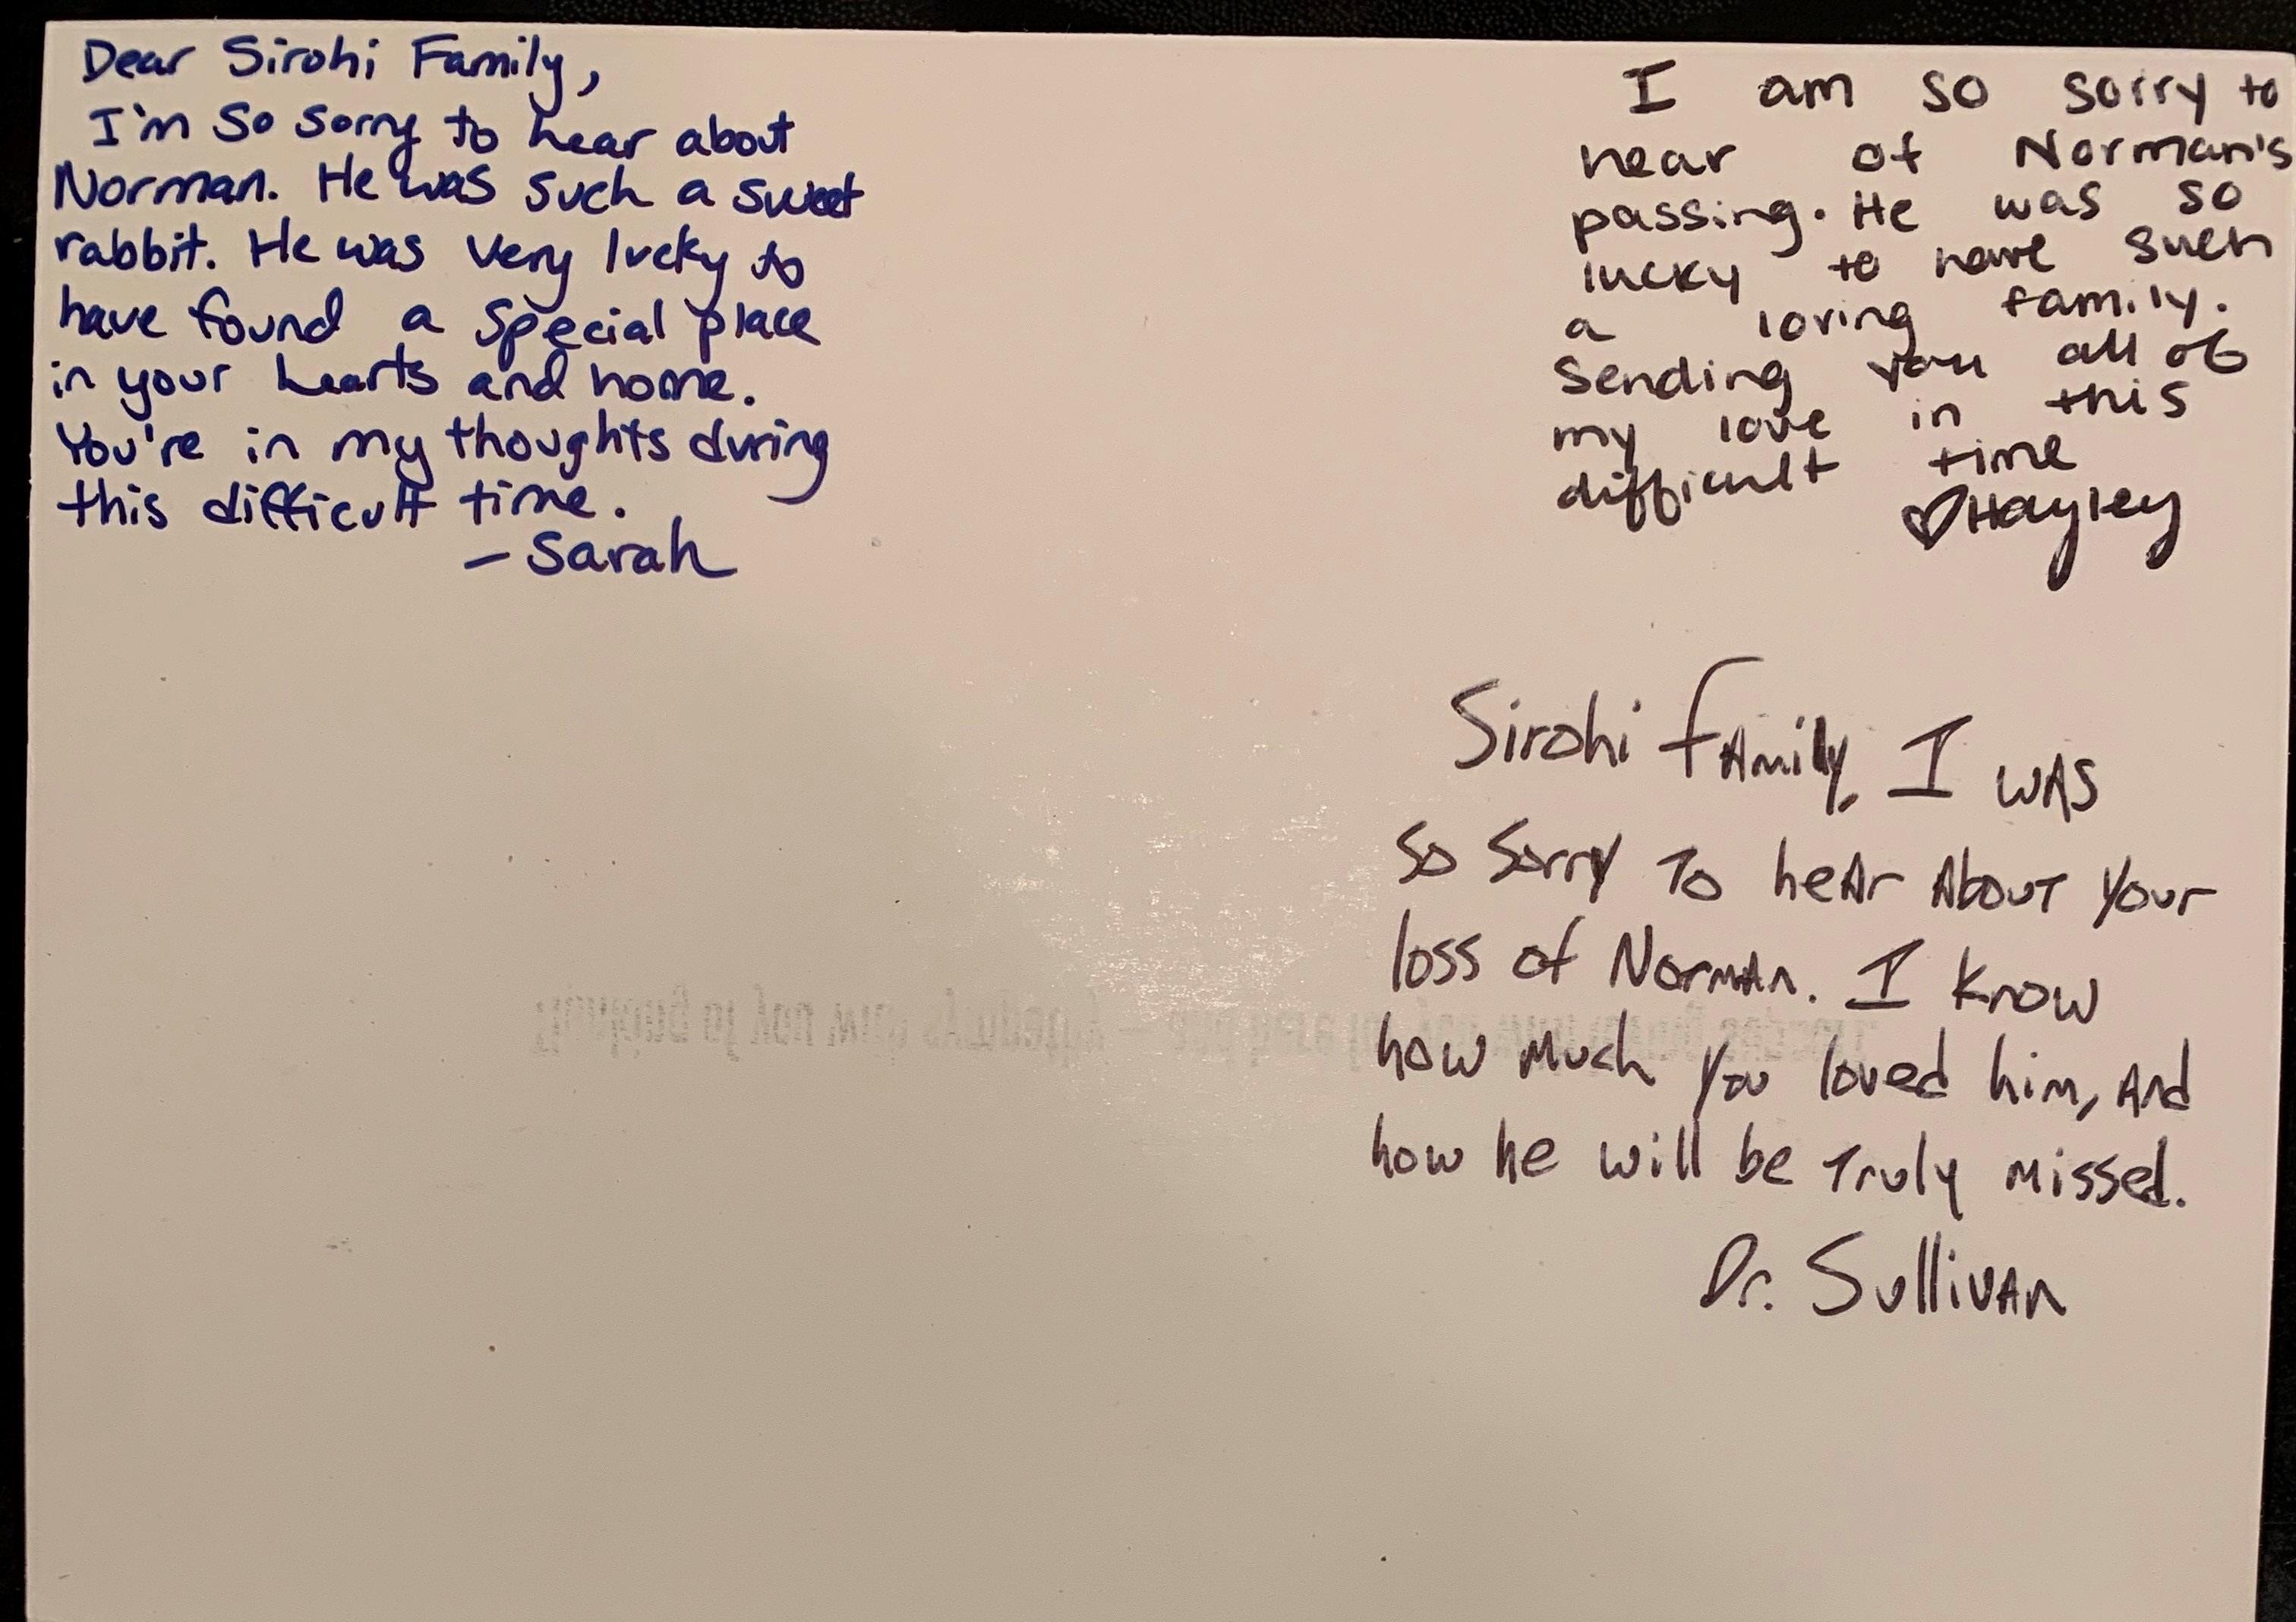 Dear Sirohi Family,
I'm so sorry to hear about
Norman. He was such a sweet
rabbit. He was very lucky to
have found a special place
in your hearts and home.
You're in my thoughts during
this difficult time.
- Sarah
I am so sorry to
hear of Norman's
passing. He was so
lucky to have such
a loving family.
Sending you all of
my love in this
difficult time
♡Hayley
Sirohi Family, I was
so sorry to hear about your
loss of Norman. I know
how much you loved him, and
how he will be truly missed.
Dr. Sullivan